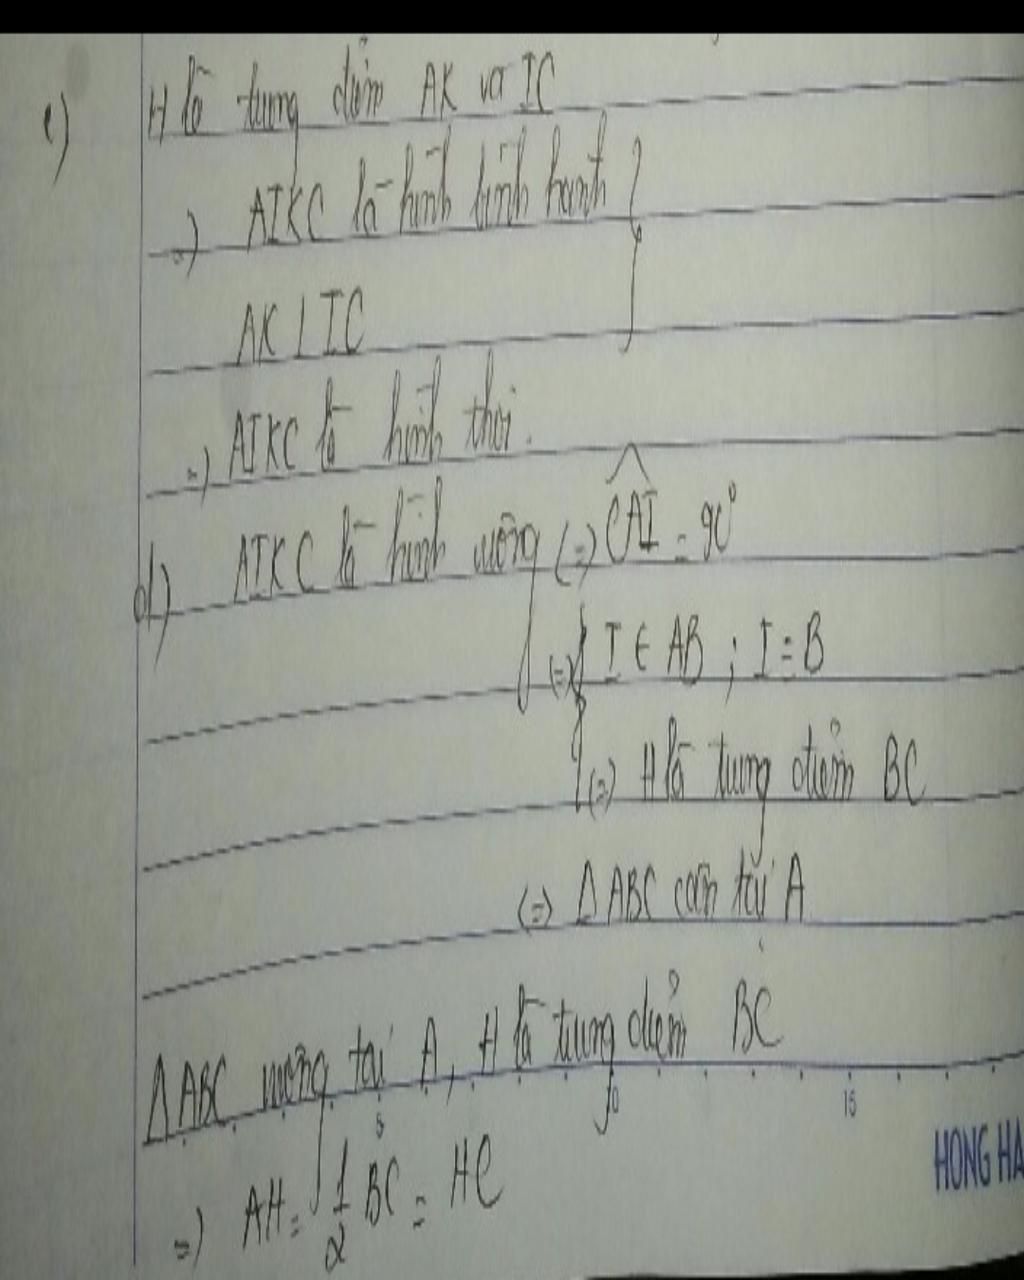 c) H là trung điểm AK và IC
=) AIKC là hình bình hành
AK ⊥ IC
=) AIKC là hình thoi.
d) AIKC là hình vuông (=) CAI = 90°
(=) I ∈ AB ; I ≡ B
(=) H là trung điểm BC
(=) Δ ABC cân tại A
Δ ABC vuông tại A, H là trung điểm BC
5 10 15
HONG HA
=) AH = 1/2 BC = HC